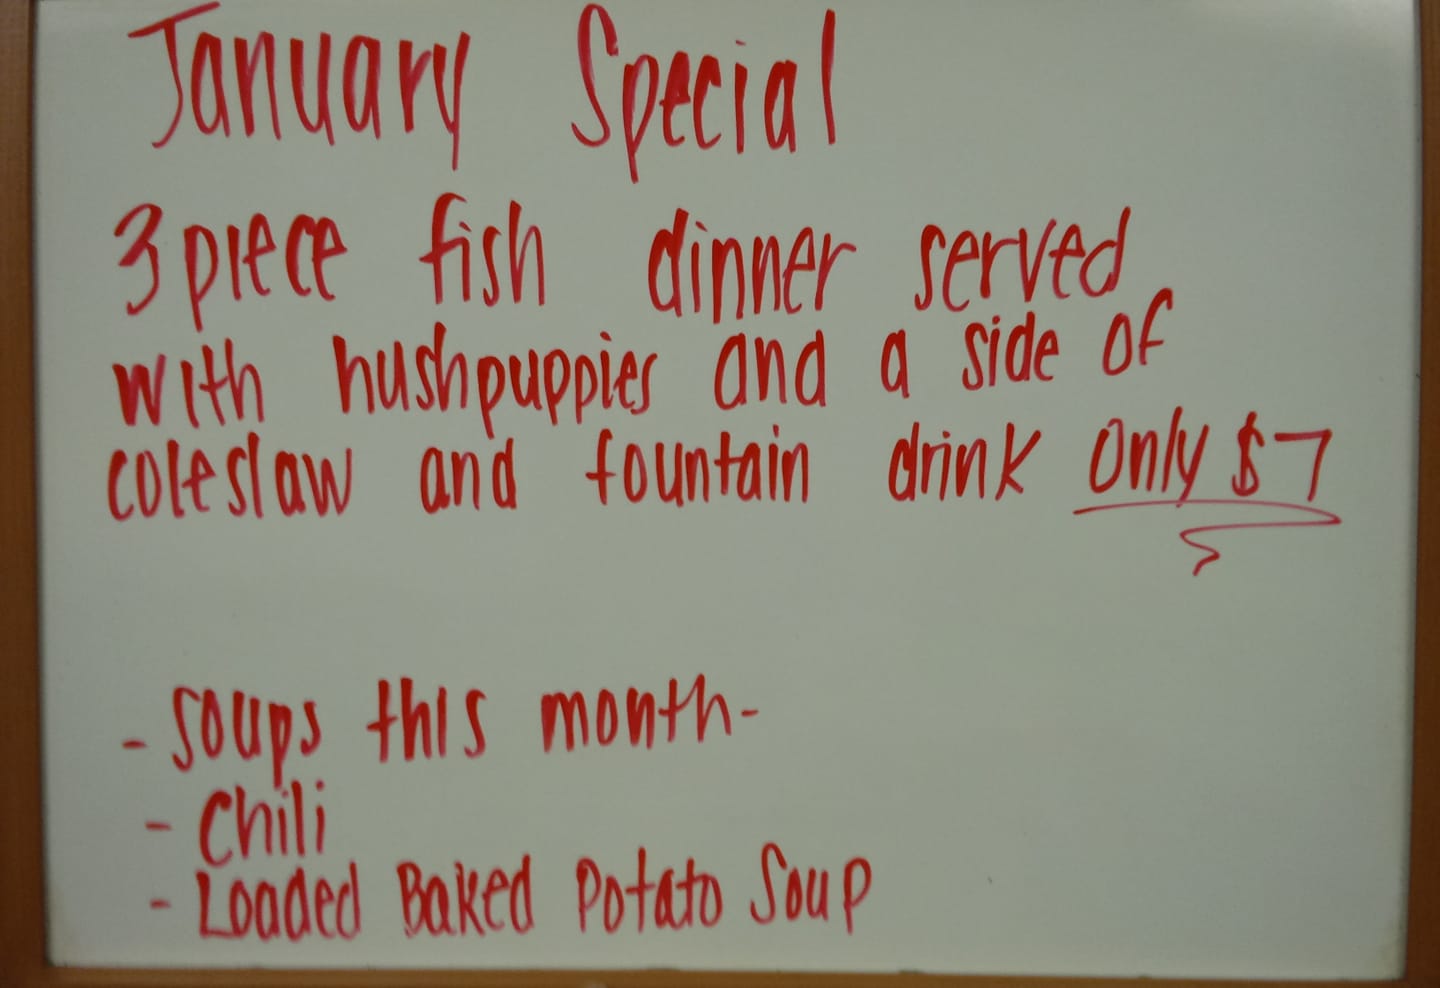 January Special
3 piece fish dinner served
with hushpuppies and a side of
coleslaw and fountain drink only $7
- Soups this month -
- Chili
- Loaded Baked Potato Soup